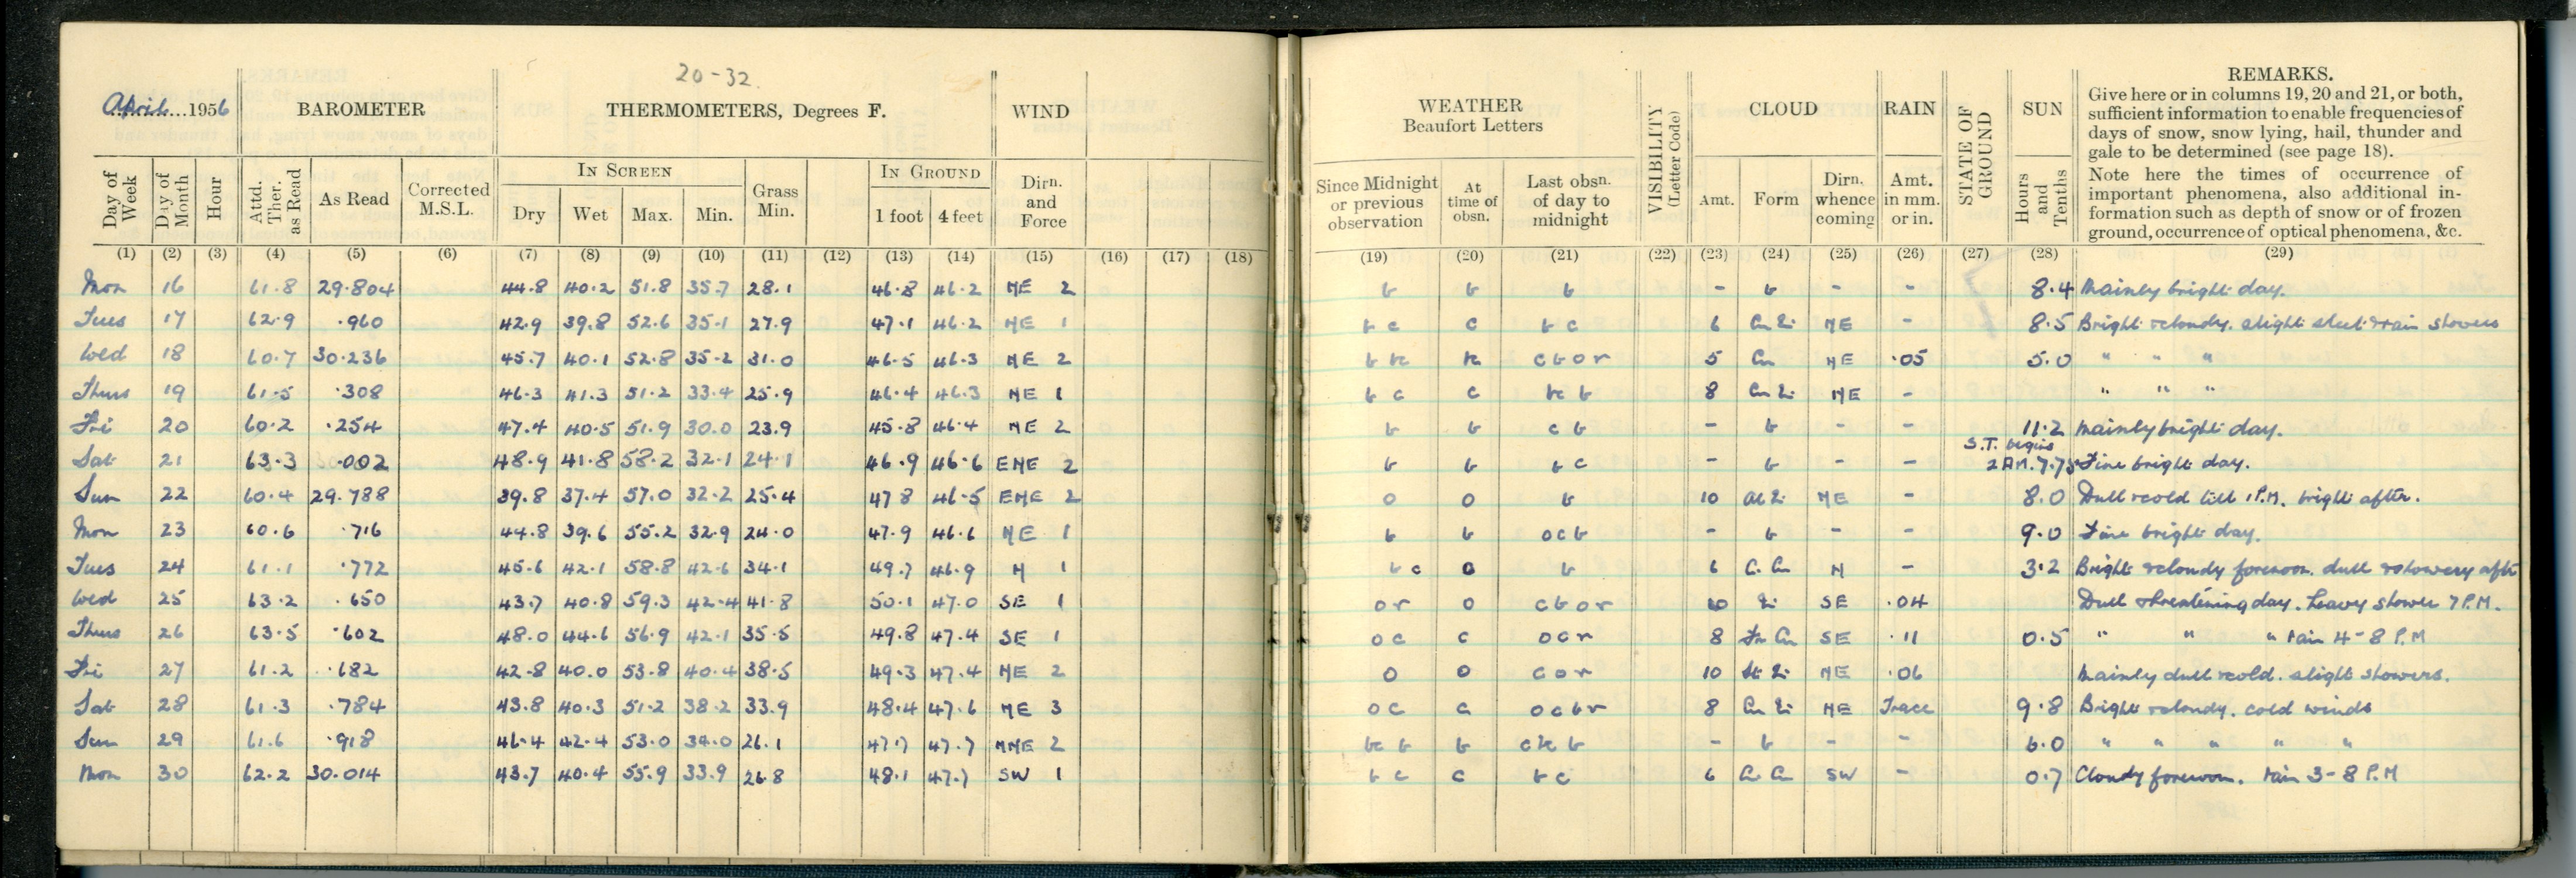 20-32
April 1956 BAROMETER THERMOMETERS, Degrees F. WIND
IN SCREEN IN GROUND
Day of Week Day of Month Hour Attd. Ther. as Read As Read Corrected M.S.L. Dry Wet Max. Min. Grass Min. 1 foot 4 feet Dirn. and Force
(1) (2) (3) (4) (5) (6) (7) (8) (9) (10) (11) (12) (13) (14) (15) (16) (17) (18)
Mon 16 61.8 29.804 44.8 40.2 51.8 35.7 28.1 46.8 46.2 NE 2
Tues 17 62.9 .960 42.9 39.8 52.6 35.1 27.9 47.1 46.2 NE 1
Wed 18 60.7 30.236 45.7 40.1 52.8 35.2 31.0 46.5 46.3 NE 2
Thurs 19 61.5 .308 46.3 41.3 51.2 33.4 25.9 46.4 46.3 NE 1
Fri 20 60.2 .254 47.4 40.5 51.9 30.0 23.9 45.8 46.4 NE 2
Sat 21 63.3 .002 48.9 41.8 58.2 32.1 24.1 46.9 46.6 ENE 2
Sun 22 60.4 29.788 39.8 37.4 57.0 32.2 25.4 47 8 46.5 ENE 2
Mon 23 60.6 .716 44.8 39.6 55.2 32.9 24.0 47.9 46.6 NE 1
Tues 24 61.1 .772 45.6 42.1 58.8 42.6 34.1 49.7 46.9 N 1
Wed 25 63.2 .650 43.7 40.8 59.3 42.4 41.8 50.1 47.0 SE 1
Thurs 26 63.5 .602 48.0 44.6 56.9 42.1 35.5 49.8 47.4 SE 1
Fri 27 61.2 .682 42.8 40.0 53.8 40.4 38.5 49.3 47.4 NE 2
Sat 28 61.3 .784 43.8 40.3 51.2 38.2 33.9 48.4 47.6 NE 3
Sun 29 61.6 .918 46.4 42.4 53.0 34.0 26.1 47.7 47.7 NNE 2
Mon 30 62.2 30.014 43.7 40.4 55.9 33.9 26.8 48.1 47.7 SW 1
WEATHER Beaufort Letters VISIBILITY (Letter Code) CLOUD RAIN STATE OF GROUND SUN REMARKS.
Give here or in columns 19, 20 and 21, or both,
sufficient information to enable frequencies of
days of snow, snow lying, hail, thunder and
gale to be determined (see page 18).
Note here the times of occurrence of
important phenomena, also additional in-
formation such as depth of snow or of frozen
ground, occurrence of optical phenomena, &c.
Since Midnight or previous observation At time of obsn. Last obsn. of day to midnight Amt. Form Dirn. whence coming Amt. in mm. or in. Hours and Tenths
(19) (20) (21) (22) (23) (24) (25) (26) (27) (28) (29)
b b b - b - - 8.4 Mainly bright day.
bc c bc 6 NE - 8.5 Bright & cloudy. slight sleet & rain showers
5 Cu NE .05 5.0 " " "
bc c 8 NE - " " "
b b cb - b - - 11.2 Mainly bright day.
S.T. begins
b b bc - b - - 2 AM. 7.75 Fine bright day.
o o b 10 NE - 8.0 Dull & cold till 1 P.M. bright after.
b b ocb - b - - 9.0 Fine bright day.
bc o b 6 N - 3.2 Bright & cloudy forenoon. dull & showery aft
or o cbor 10 SE .04 Dull & threatening day. heavy shower 7 P.M.
oc c ocr 8 SE .11 0.5 " " " rain 4-8 P.M
o o cor 10 NE .06 Mainly dull & cold. slight showers.
oc c ocbr 8 NE Trace 9.8 Bright & cloudy. cold winds
b - b - - 6.0 " " " " "
bc c bc 6 SW - 0.7 Cloudy forenoon. rain 3-8 P.M